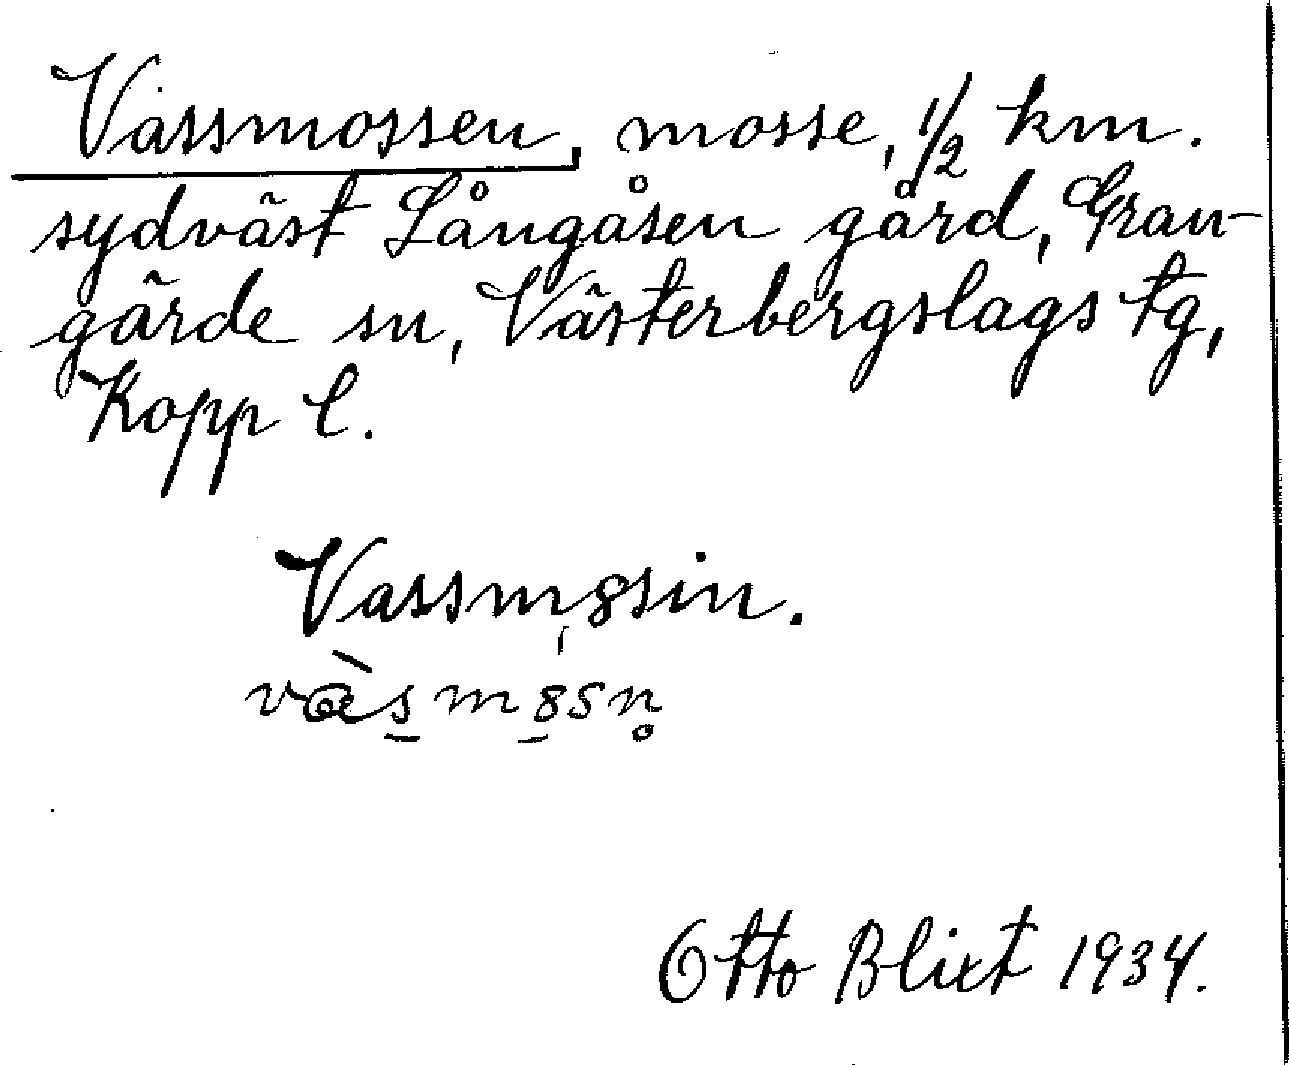 Vassmossen, mosse, 1/2 km.
sydväst Långåsen gård, Gran-
gärde sn, Västerbergslags tg,
Kopp l.
Vassm8sin.
vàs̠m8̠sn̥
Otto Blixt 1934.